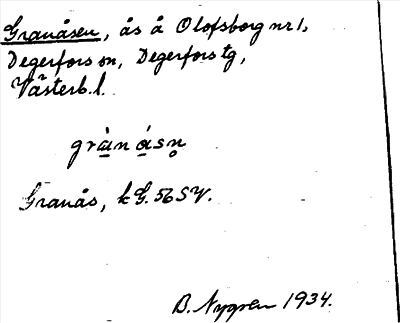 Granåsen, ås å Olofsborg nr 1,
Degerfors sn, Degerfors tg,
Västerb. l.
grànásn
Granås, k G. 56 SV.
B. Nygren 1934.